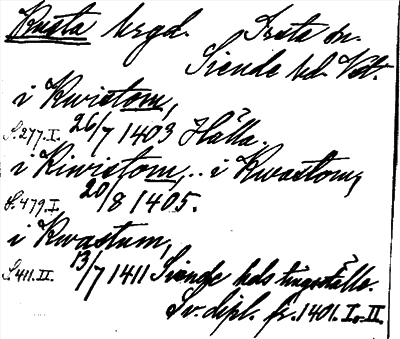 Kvista bygd. Irsta sn.
Siende hd. Vst.
i Kwistom,
S. 277. I. 26/7 1403 Hälla.
i Kiwistom,.. i Kwastom,
S. 479. I. 20/8 1405.
i Kwastum,
S 411. II. 13/7 1411 Siende hds tingställe.
Sv. dipl. fr. 1401. I.-II.